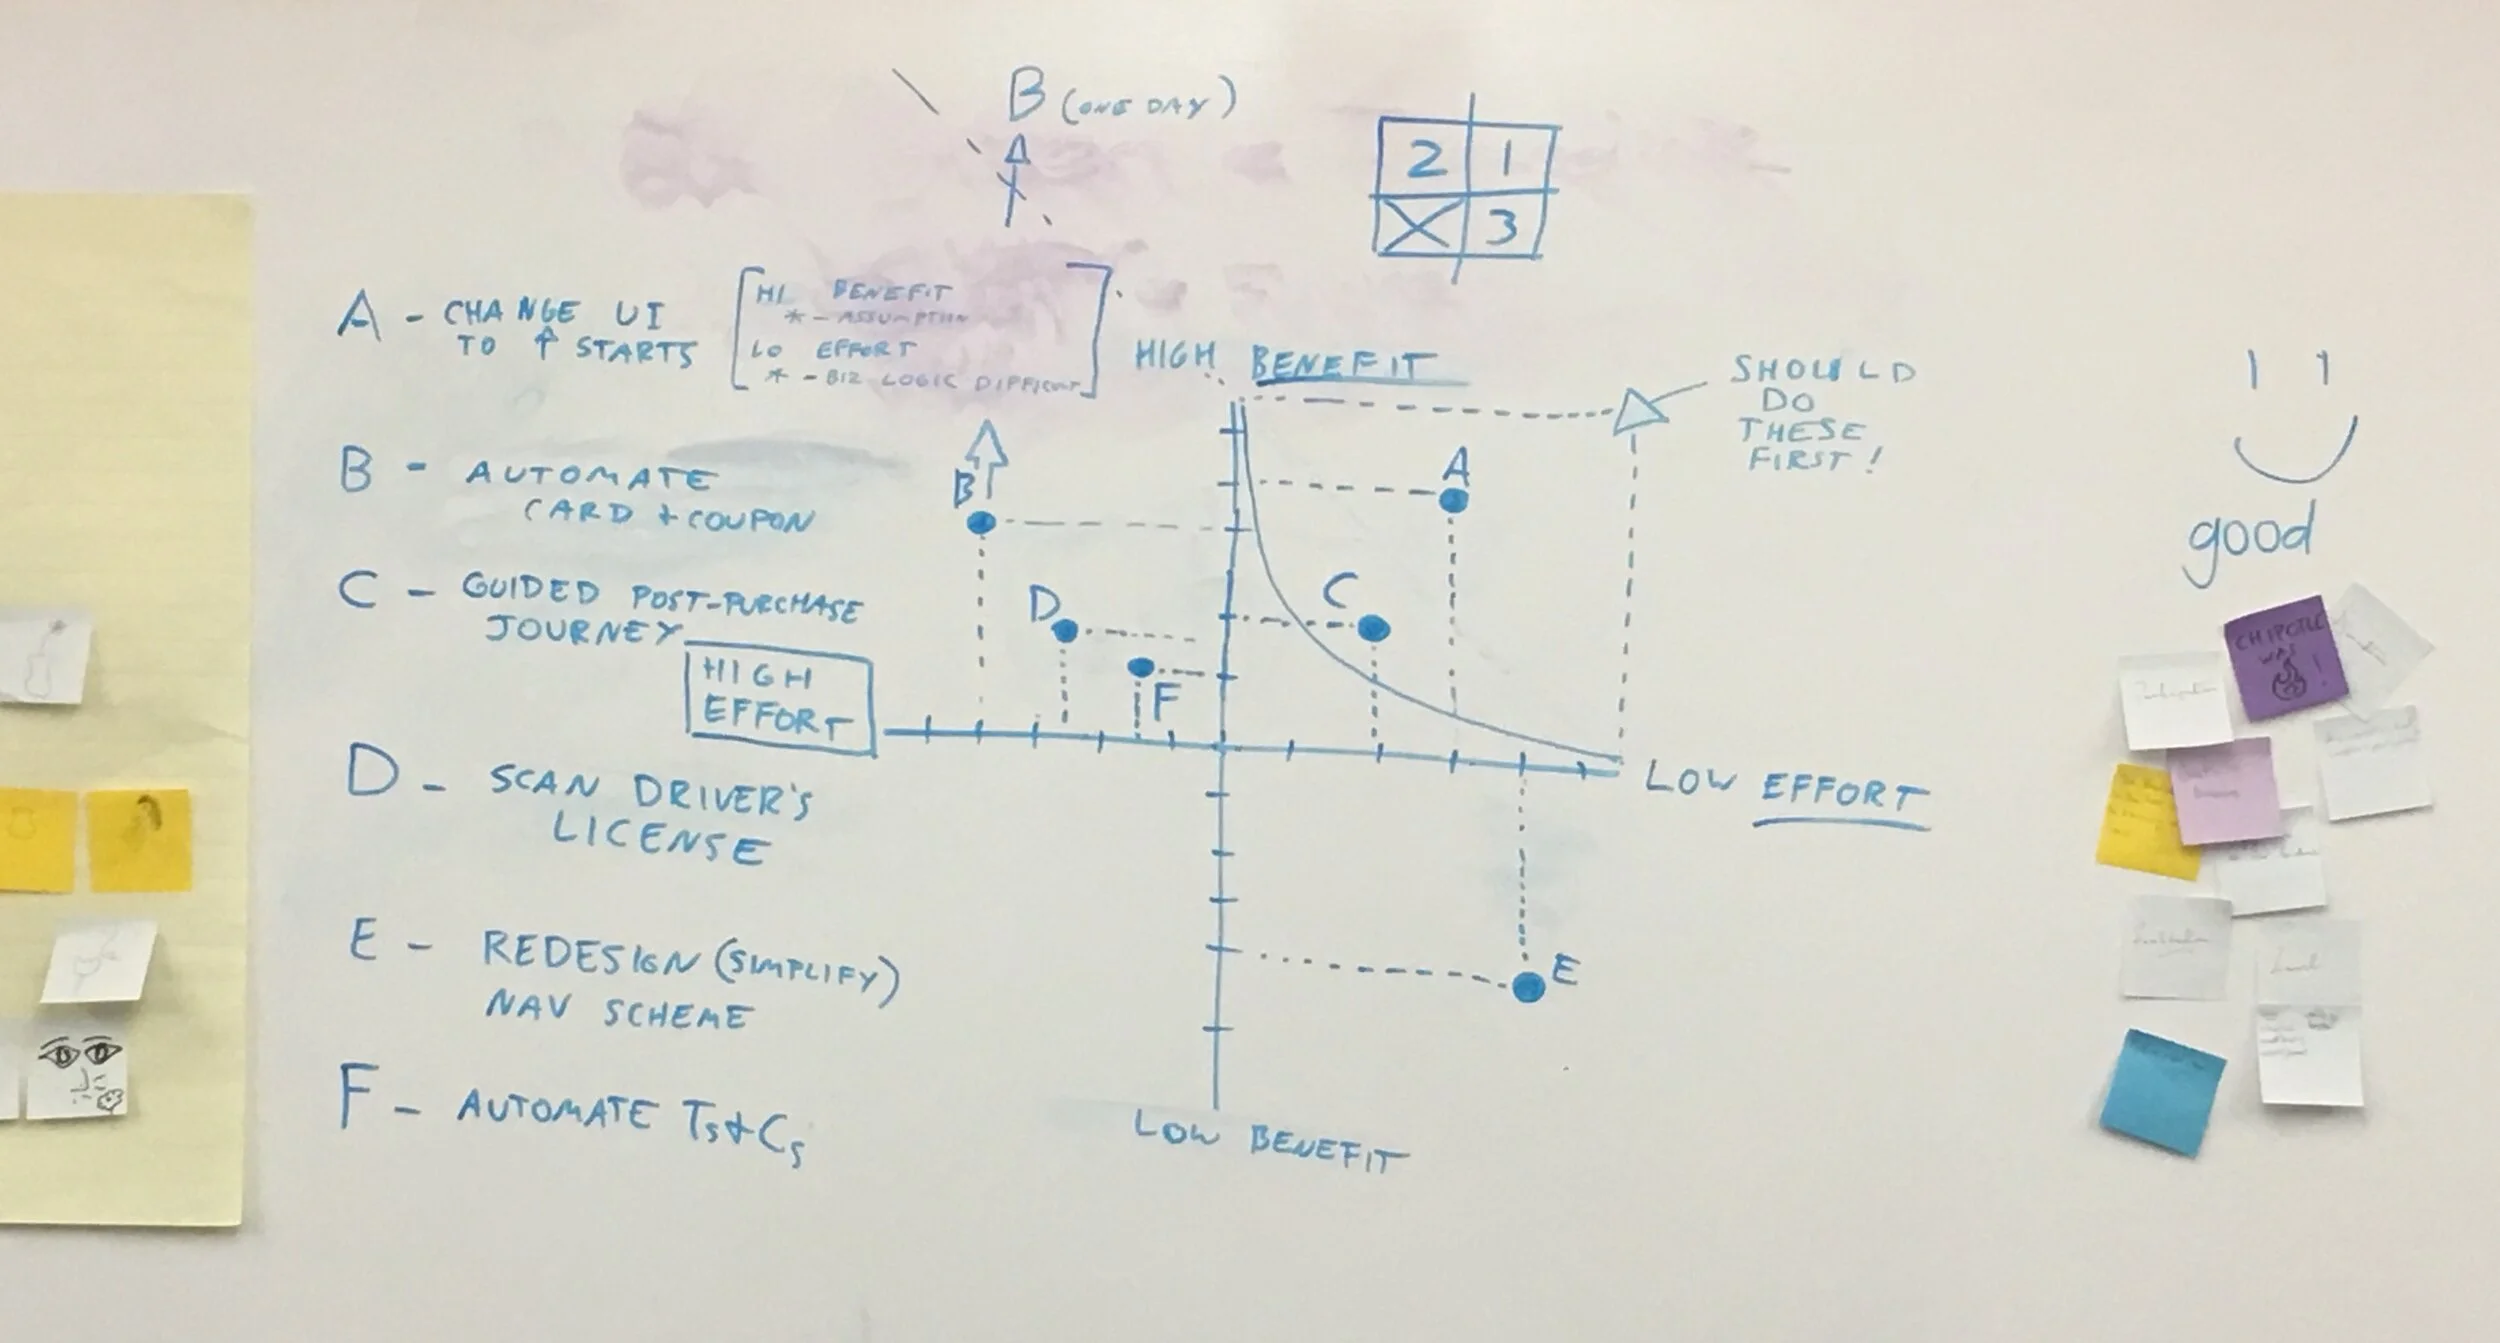 B (ONE DAY)
2 1
X 3
A - CHANGE UI
TO ↑ STARTS
HI BENEFIT
* - ASSUMPTION
LO EFFORT
* - BIZ LOGIC DIFFICULT
HIGH BENEFIT
SHOULD
DO
THESE
FIRST!
B - AUTOMATE
CARD + COUPON
C - GUIDED POST-PURCHASE
JOURNEY
HIGH
EFFORT
D - SCAN DRIVER'S
LICENSE
E - REDESIGN (SIMPLIFY)
NAV SCHEME
F - AUTOMATE Ts+Cs
B
A
D
C
F
E
LOW EFFORT
LOW BENEFIT
good
CHIPOTLE
WAS
!